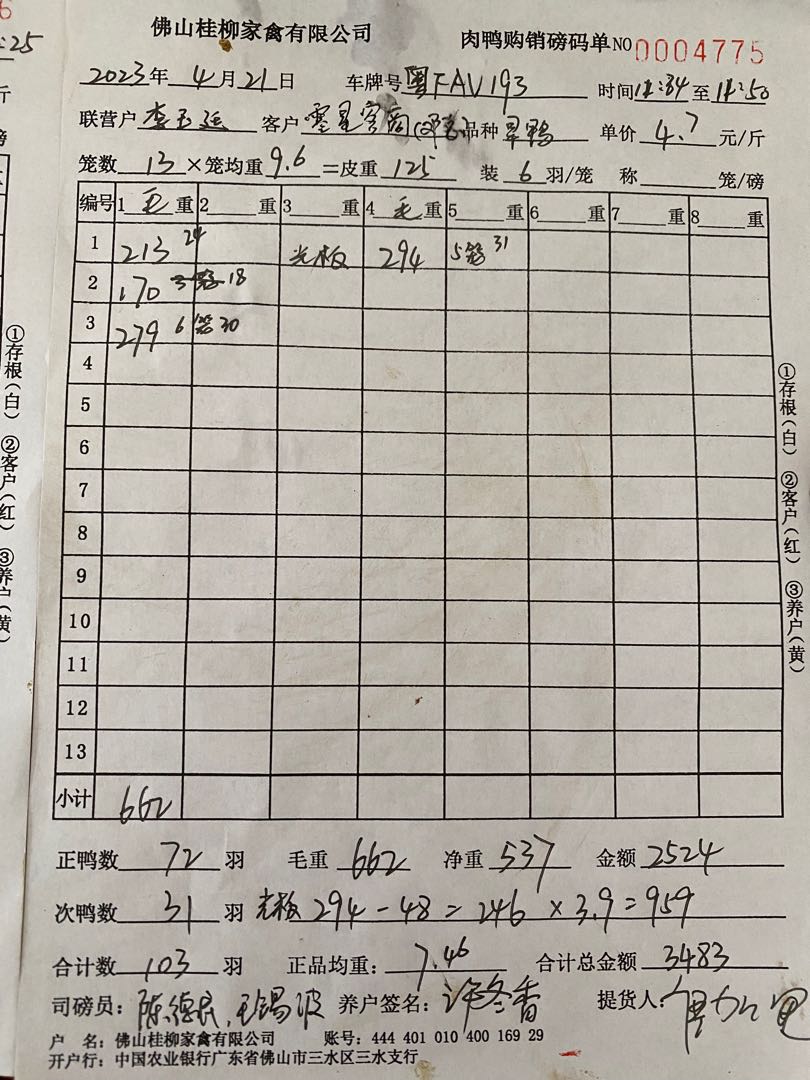 佛山桂柳家禽有限公司 肉鸭购销磅码单 NO 0004775
2023年 4月21日 车牌号 粤FAV193 时间 11:34 至 11:50
联营户 李玉廷 客户 零星客商 品种 旱鸭 单价 4.7 元/斤
笼数 13 ×笼均重 9.6 =皮重 125 装 6 羽/笼 称 笼/磅
编号 1 毛 重 2 重 3 重 4 毛 重 5 重 6 重 7 重 8 重
1 213 24 光板 294 5笼 31
2 170 18
3 279 6笼 30
4
5
6
7
8
9
10
11
12
13
小计 662
正鸭数 72 羽 毛重 662 净重 537 金额 2524
次鸭数 31 羽 光板 294-48=246×3.9=959
合计数 103 羽 正品均重: 7.46 合计总金额 3483
司磅员: 陈德民, 王锡波 养户签名: 许冬香 提货人:
户 名: 佛山桂柳家禽有限公司 账号: 444 401 010 400 169 29
开户行: 中国农业银行广东省佛山市三水区三水支行
①存根(白) ②客户(红) ③养户(黄)
6
:25
斤
磅
①存根(白) ②客户(红) ③养户(黄)